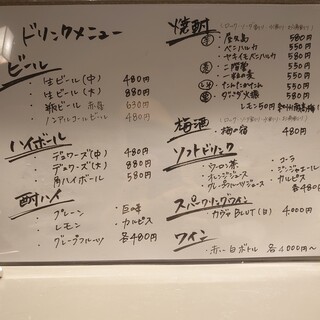 ドリンクメニュー
ビール
・生ビール(中) 480円
・生ビール(大) 880円
・瓶ビール 赤星 630円
・ノンアルコールビール 480円
ハイボール
・デュワーズ(中) 480円
・デュワーズ(大) 880円
・角ハイボール 580円
酎ハイ
・プレーン ・巨峰
・レモン ・カルピス
・グレープフルーツ 各480円
焼酎
580円
・ベニハルカ 550円
・ヤキイモベニハルカ 580円
・二階堂 550円
550円
・たんたかたん 550円
580円
レモン50円
梅酒
・梅の宿 480円
ソフトドリンク
・ウーロン茶 ・コーラ
・オレンジジュース ・ジンジャエール
・グレープフルーツジュース ・カルピス
各480
スパークリングワイン
・カヴァ BRUT(白) 4,000円
ワイン
・赤い白ボトル 各4000円〜